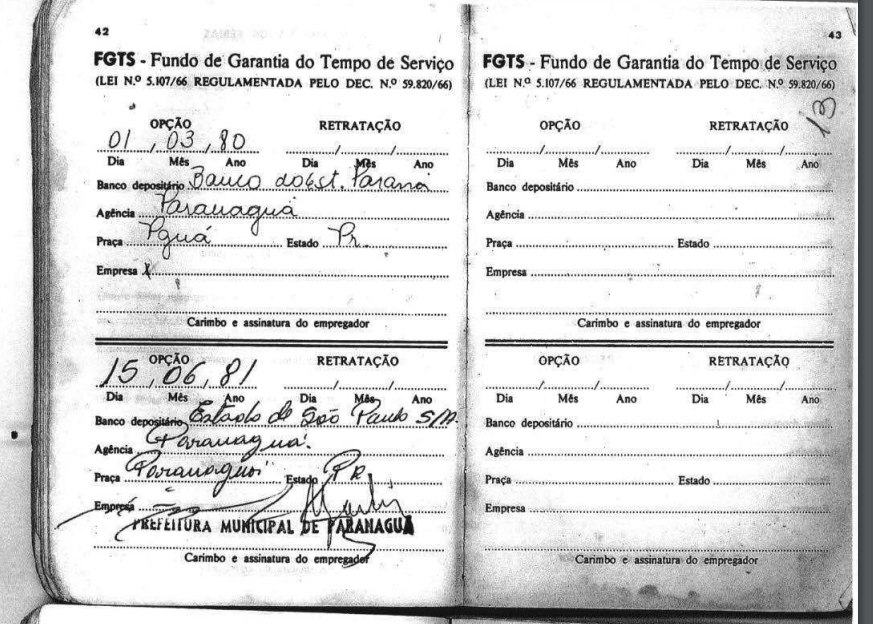 42
FGTS - Fundo de Garantia do Tempo de Serviço
(LEI N.º 5.107/66 REGULAMENTADA PELO DEC. N.º 59.820/66)
OPÇÃO RETRATAÇÃO
01 / 03 / 80 / /
Dia Mês Ano Dia Mês Ano
Banco depositário Banco do Est. Paraná
Agência Paranaguá
Praça Pguá Estado Pr.
Empresa X
Carimbo e assinatura do empregador
OPÇÃO RETRATAÇÃO
15 / 06 / 81 / /
Dia Mês Ano Dia Mês Ano
Banco depositário Estado de São Paulo S/A.
Agência Paranaguá.
Praça Paranaguá Estado PR
Empresa
PREFEITURA MUNICIPAL DE PARANAGUÁ
Carimbo e assinatura do empregador
43
FGTS - Fundo de Garantia do Tempo de Serviço
(LEI N.º 5.107/66 REGULAMENTADA PELO DEC. N.º 59.820/66)
13
OPÇÃO RETRATAÇÃO
/ / / /
Dia Mês Ano Dia Mês Ano
Banco depositário
Agência
Praça Estado
Empresa
Carimbo e assinatura do empregador
OPÇÃO RETRATAÇÃO
/ / / /
Dia Mês Ano Dia Mês Ano
Banco depositário
Agência
Praça Estado
Empresa
Carimbo e assinatura do empregador